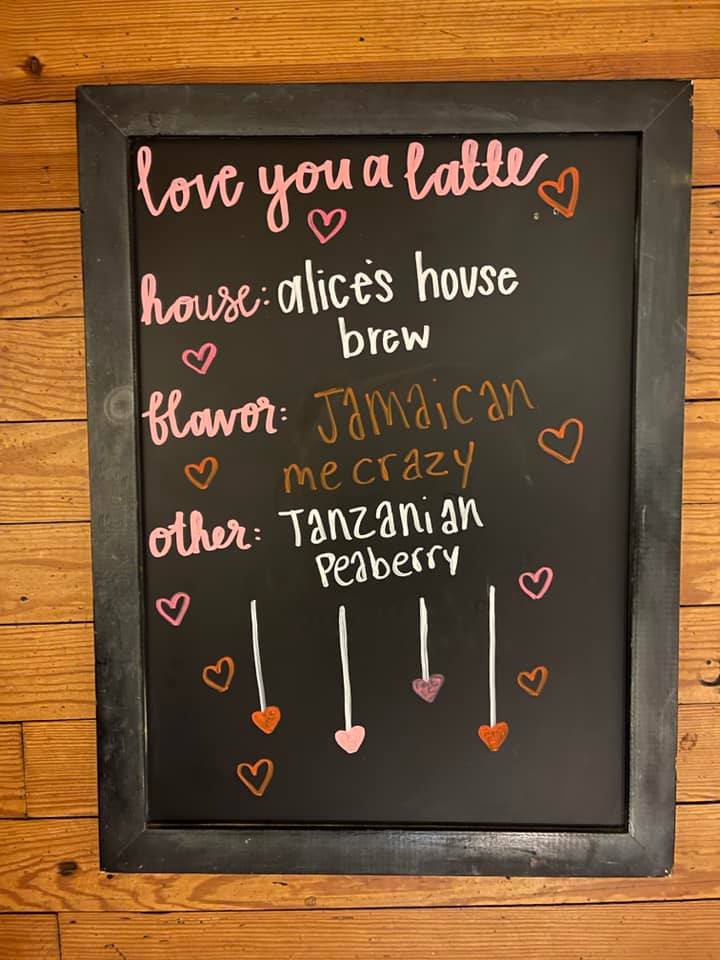 love you a latte
house: alice's house
brew
flavor: Jamaican
me crazy
other: Tanzanian
Peaberry